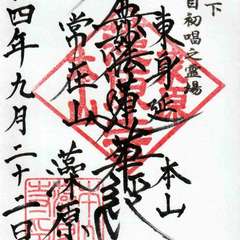 下
目初唱之霊場
東身延
本山
無妙法蓮華経
常在山
藻原
四年九月二十二日